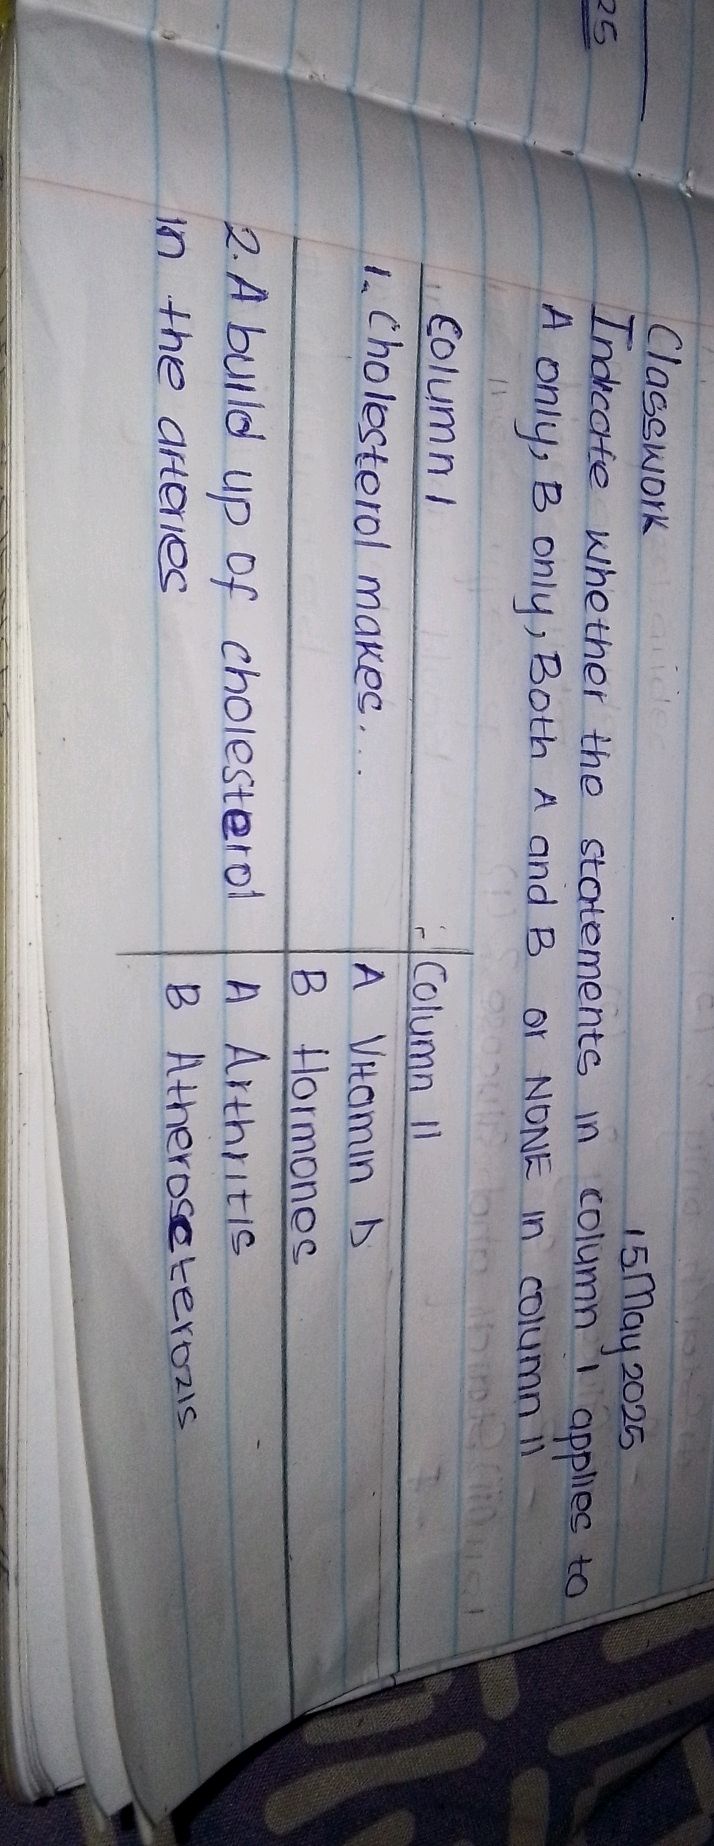 25
Classwork
15 May 2025
Indicate whether the statements in column 1 applies to
A only, B only, Both A and B or NONE in column 11
Column 1
Column 11
1. Cholesterol makes...
A Vitamin D
B Hormones
2. A build up of cholesterol
A Arthritis
in the arteries
B Atherosclerozis